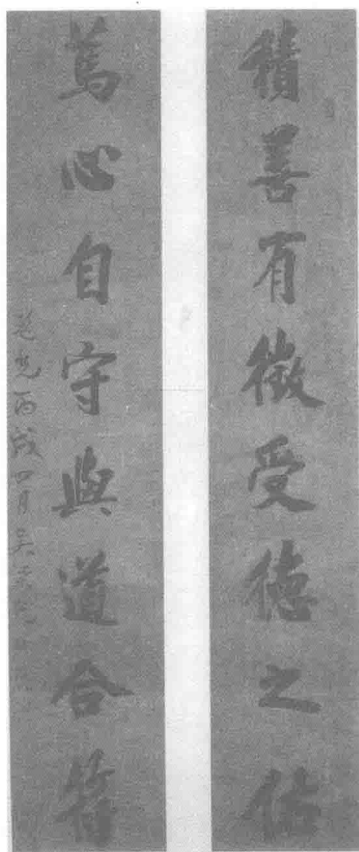 積善有徵受德之佑
篤心自守與道合符
道光丙戌四月吳榮光